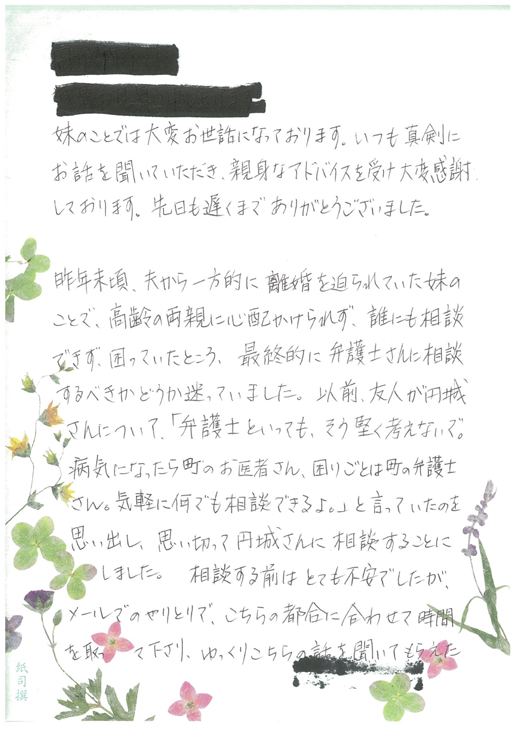 妹のことでは大変お世話になっております。いつも真剣に
お話を聞いていただき、親身なアドバイスを受け大変感謝
しております。先日も遅くまでありがとうございました。
昨年末頃、夫から一方的に離婚を迫られていた妹の
ことで、高齢の両親に心配かけられず、誰にも相談
できず、困っていたところ、最終的に弁護士さんに相談
するべきかどうか迷っていました。以前、友人が円城
さんについて、「弁護士といっても、そう堅く考えないで。
病気になったら町のお医者さん、困りごとは町の弁護士
さん。気軽に何でも相談できるよ。」と言っていたのを
思い出し、思い切って円城さんに相談することに
しました。相談する前はとても不安でしたが、
メールでのやりとりで、こちらの都合に合わせて時間
を取って下さり、ゆっくりこちらの話を聞いてもらえた
紙司撰